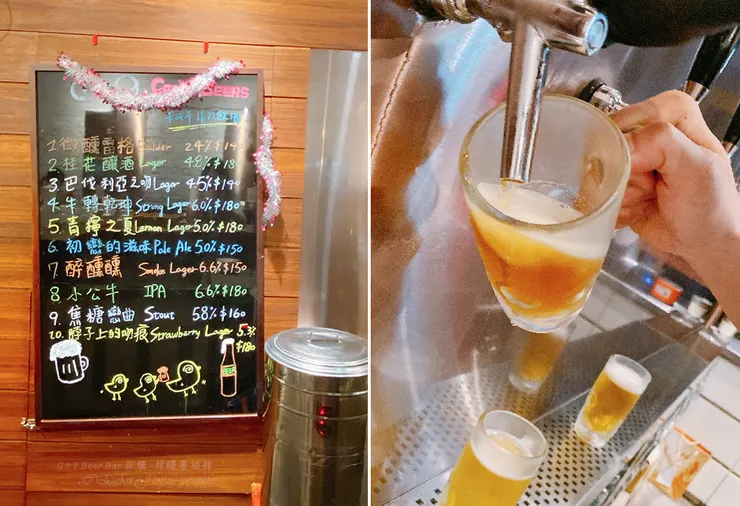 Craft BEERS
1. 微醺雷格 Raulder 2.4% $140
2. 桂花釀酒 Lager 4.8% $180
3. 巴伐利亞之吻 Lager 4.5% $140
4. 牛轉乾坤 Strong Lager 6.0% $180
5. 青檸之夏 Lemon Lager 5.0% $180
6. 初戀的滋味 Pale Ale 5.0% $150
7 醉醺醺 Smoke Lager 6.6% $150
8 小公牛 IPA 6.6% $180
9. 焦糖戀曲 Stout 5.8% $160
10. 脖子上的吻痕 Strawberry Lager 5.%
$180
G+9 Beer Bar 鮮釀